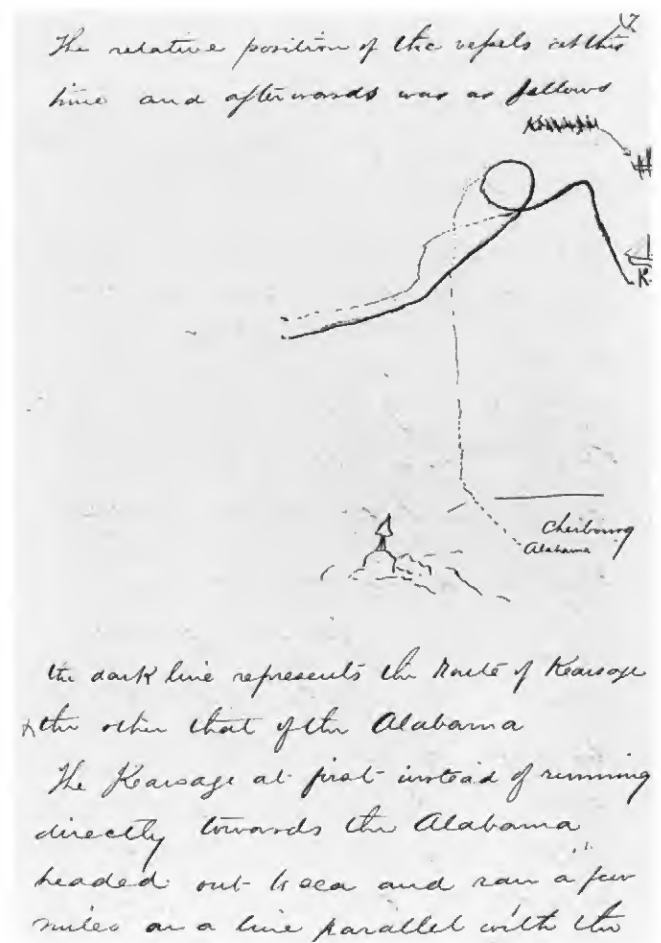 17
The relative position of the vessels at this
time and afterwards was as follows
K
Cherbourg
Alabama
the dark line represents the Route of Kearsage
& the other that of the Alabama
The Kearsage at first instead of running
directly towards the Alabama
headed out to sea and ran a few
miles on a line parallel with the